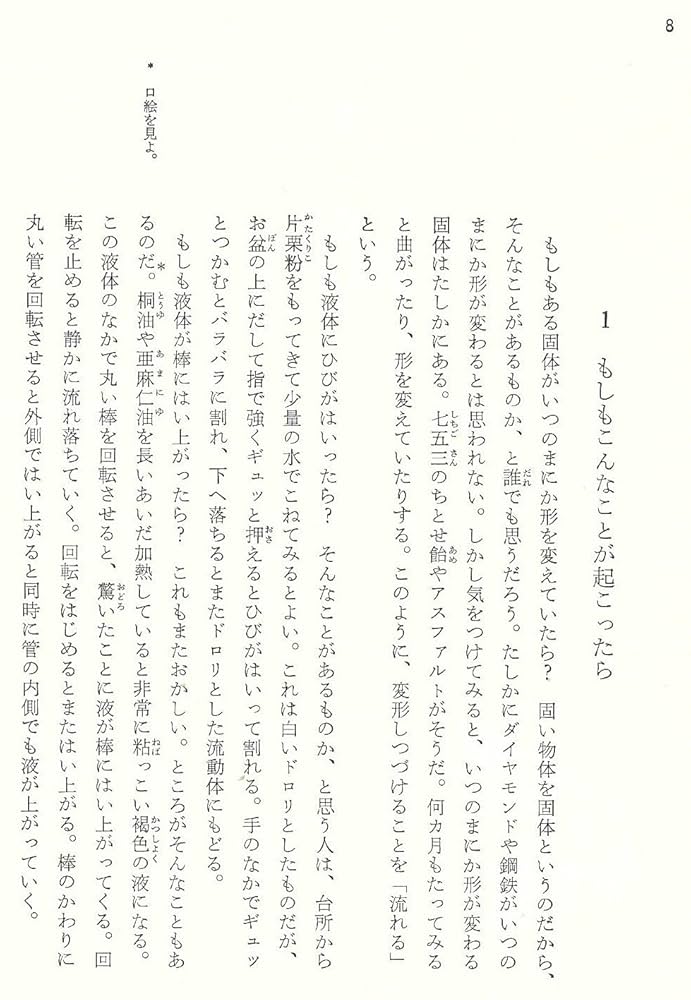 8
1 もしもこんなことが起こったら
もしもある固体がいつのまにか形を変えていたら? 固い物体を固体というのだから、
そんなことがあるものか、と誰でも思うだろう。たしかにダイヤモンドや鋼鉄がいつの
まにか形が変わるとは思われない。しかし気をつけてみると、いつのまにか形が変わる
固体はたしかにある。七五三のちとせ飴やアスファルトがそうだ。何カ月もたってみる
と曲がったり、形を変えていたりする。このように、変形しつづけることを「流れる」
という。
もしも液体にひびがはいったら? そんなことがあるものか、と思う人は、台所から
片栗粉をもってきて少量の水でこねてみるとよい。これは白いドロリとしたものだが、
お盆の上にだして指で強くギュッと押えるとひびがはいって割れる。手のなかでギュッ
とつかむとバラバラに割れ、下へ落ちるとまたドロリとした流動体にもどる。
もしも液体が棒にはい上がったら? これもまたおかしい。ところがそんなこともあ
るのだ。*桐油や亜麻仁油を長いあいだ加熱していると非常に粘っこい褐色の液になる。
この液体のなかで丸い棒を回転させると、驚いたことに液が棒にはい上がってくる。回
転を止めると静かに流れ落ちていく。回転をはじめるとまたはい上がる。棒のかわりに
丸い管を回転させると外側ではい上がると同時に管の内側でも液が上がっていく。
* 口絵を見よ。